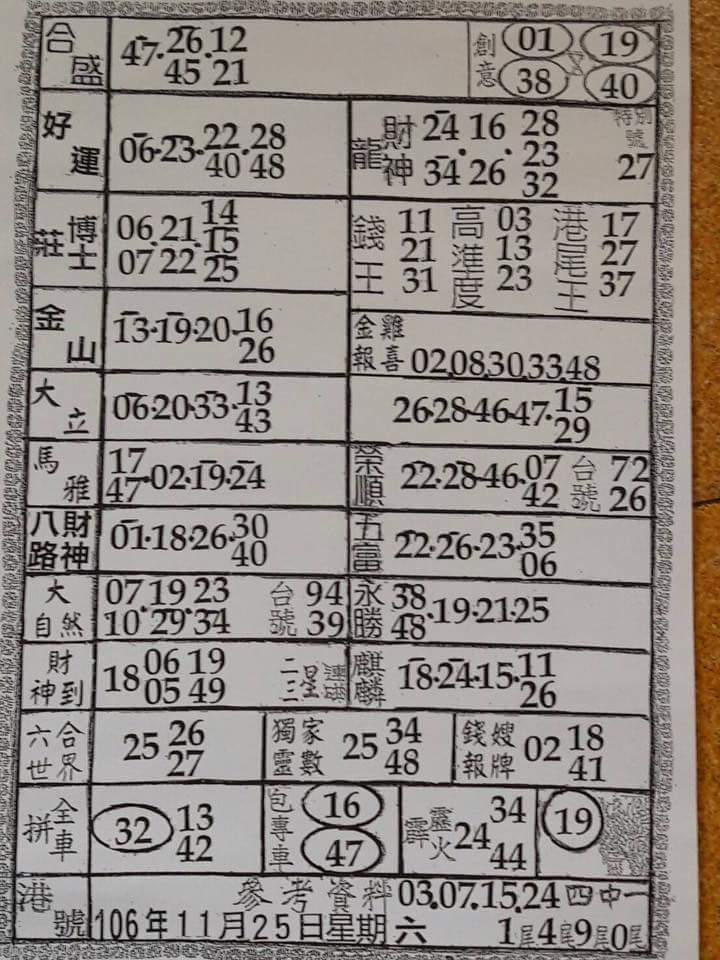 合盛 47·26·12 創意 01 19
45 21 38 40
好運 06·23·22·28
40 48
龍 財神 24 16 28 特別號
34 · 26 · 23 27
32
莊博士 06·21·14
07·22·15
25
錢王 11 高進度 03 港尾王 17
21 13 27
31 23 37
金山 13·19·20·16
26
金雞報喜 02.08.30.33.48
大立 06·20·33·13
43
26·28·46·47·15
29
馬雅 17·02·19·24
47
榮順 22·28·46·07 台號 72
42 26
八路財神 01·18·26·30
40
五富 22·26·23·35
06
大自然 07·19·23 台號 94
10·29·34 39
永勝 38·19·21·25
48
財神到 18 06 19 二三星連碰
05 49
麒麟 18·24·15·11
26
六合世界 25 26
27
獨家靈數 25 34
48
錢嫂報牌 02 18
41
全車拼 32 13
42
包專車 16
47
霹靂火 24 34
44
19
港號 參考資料 03.07.15.24 四中一
106年11月25日星期六 1尾4尾9尾0尾